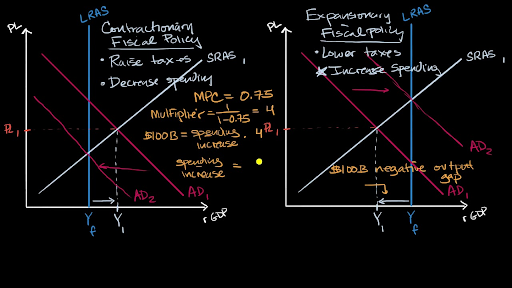 PL
LRAS
Contractionary
Fiscal Policy
• Raise taxes
• Decrease spending
SRAS1
MPC = 0.75
Multiplier = 1/(1-0.75) = 4
$100B = spending increase · 4
spending increase =
PL1
AD2
AD1
Yf
Y1
rGDP
PL
LRAS
Expansionary
Fiscal policy
• Lower taxes
Increase Spending
SRAS1
PL1
AD2
$100B negative output
gap
AD1
Y1
Yf
rGDP